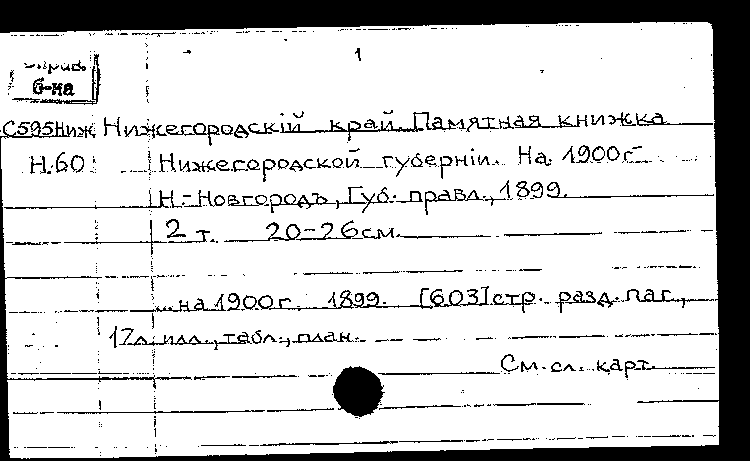 1
б-ка
С595Ниж Нижегородскiй край. Памятная книжка
Н.60 Нижегородской губернiи. На 1900г
Н.-Новгородъ, Губ. правл., 1899.
2 т. 20-26см.
...на 1900г. 1899. [603]стр. разд. паг.,
17л. илл., табл., план.
См. сл. карт.